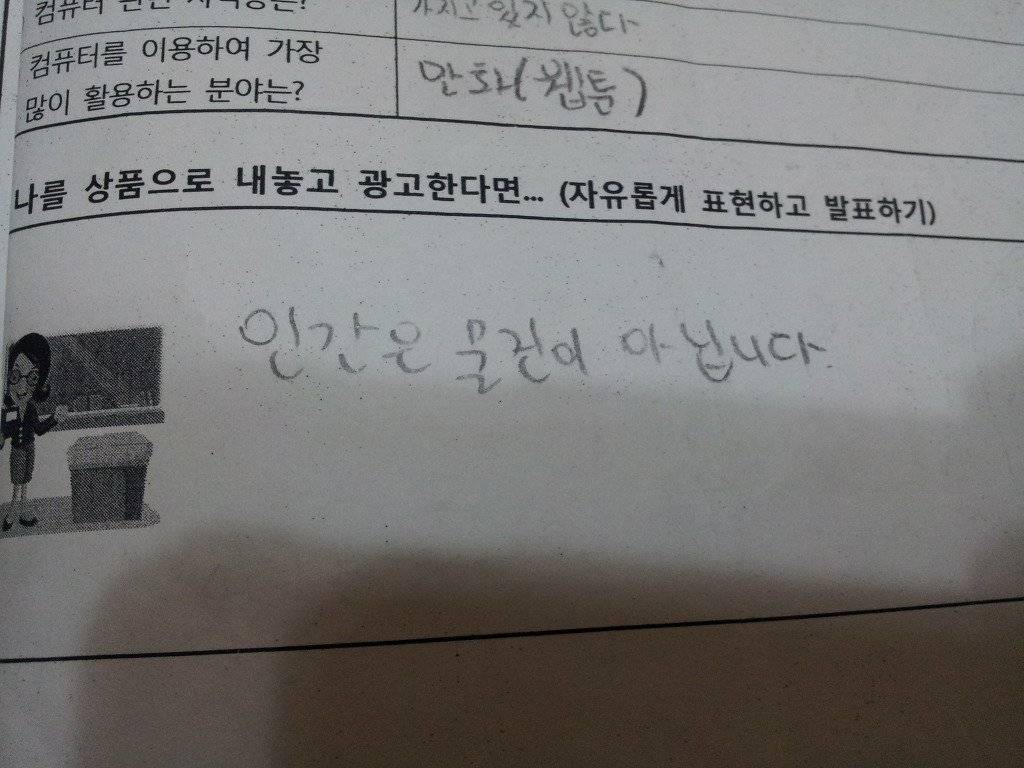 컴퓨터 관련 자격증은?
가지고 있지 않다
컴퓨터를 이용하여 가장
많이 활용하는 분야는?
만화(웹툼)
나를 상품으로 내놓고 광고한다면... (자유롭게 표현하고 발표하기)
인간은 물건이 아닙니다.